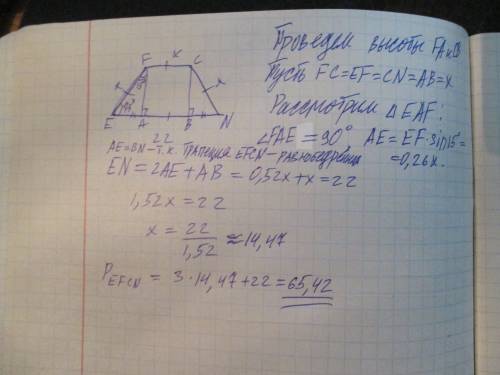 F x C
x x
E A B N
22
Проведем высоты FA и
Пусть FC=EF=CN=AB=x
Рассмотрим ΔEAF:
∠FAE = 90°, AE = EF·sin15=
=0,26x.
AE=BN – т.к. трапеция EFCN – равнобедренная
EN = 2AE + AB = 0,52x + x = 22
1,52x = 22
x = 22/1,52 ≈ 14,47
P EFCN = 3·14,47+22 = 65,42